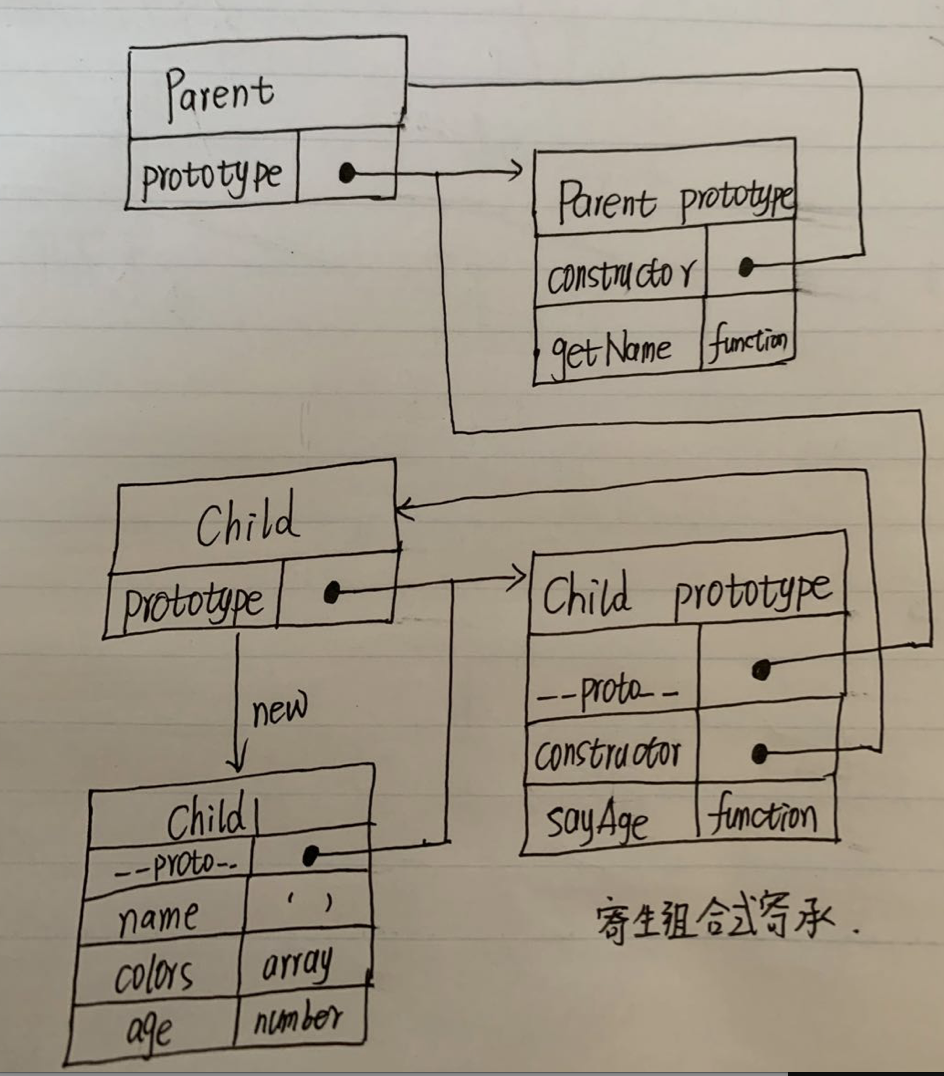 Parent
prototype
Parent prototype
constructor
getName function
Child
prototype
Child prototype
--proto--
constructor
sayAge function
new
Child1
--proto--
name ' '
colors array
age number
寄生组合式寄承.